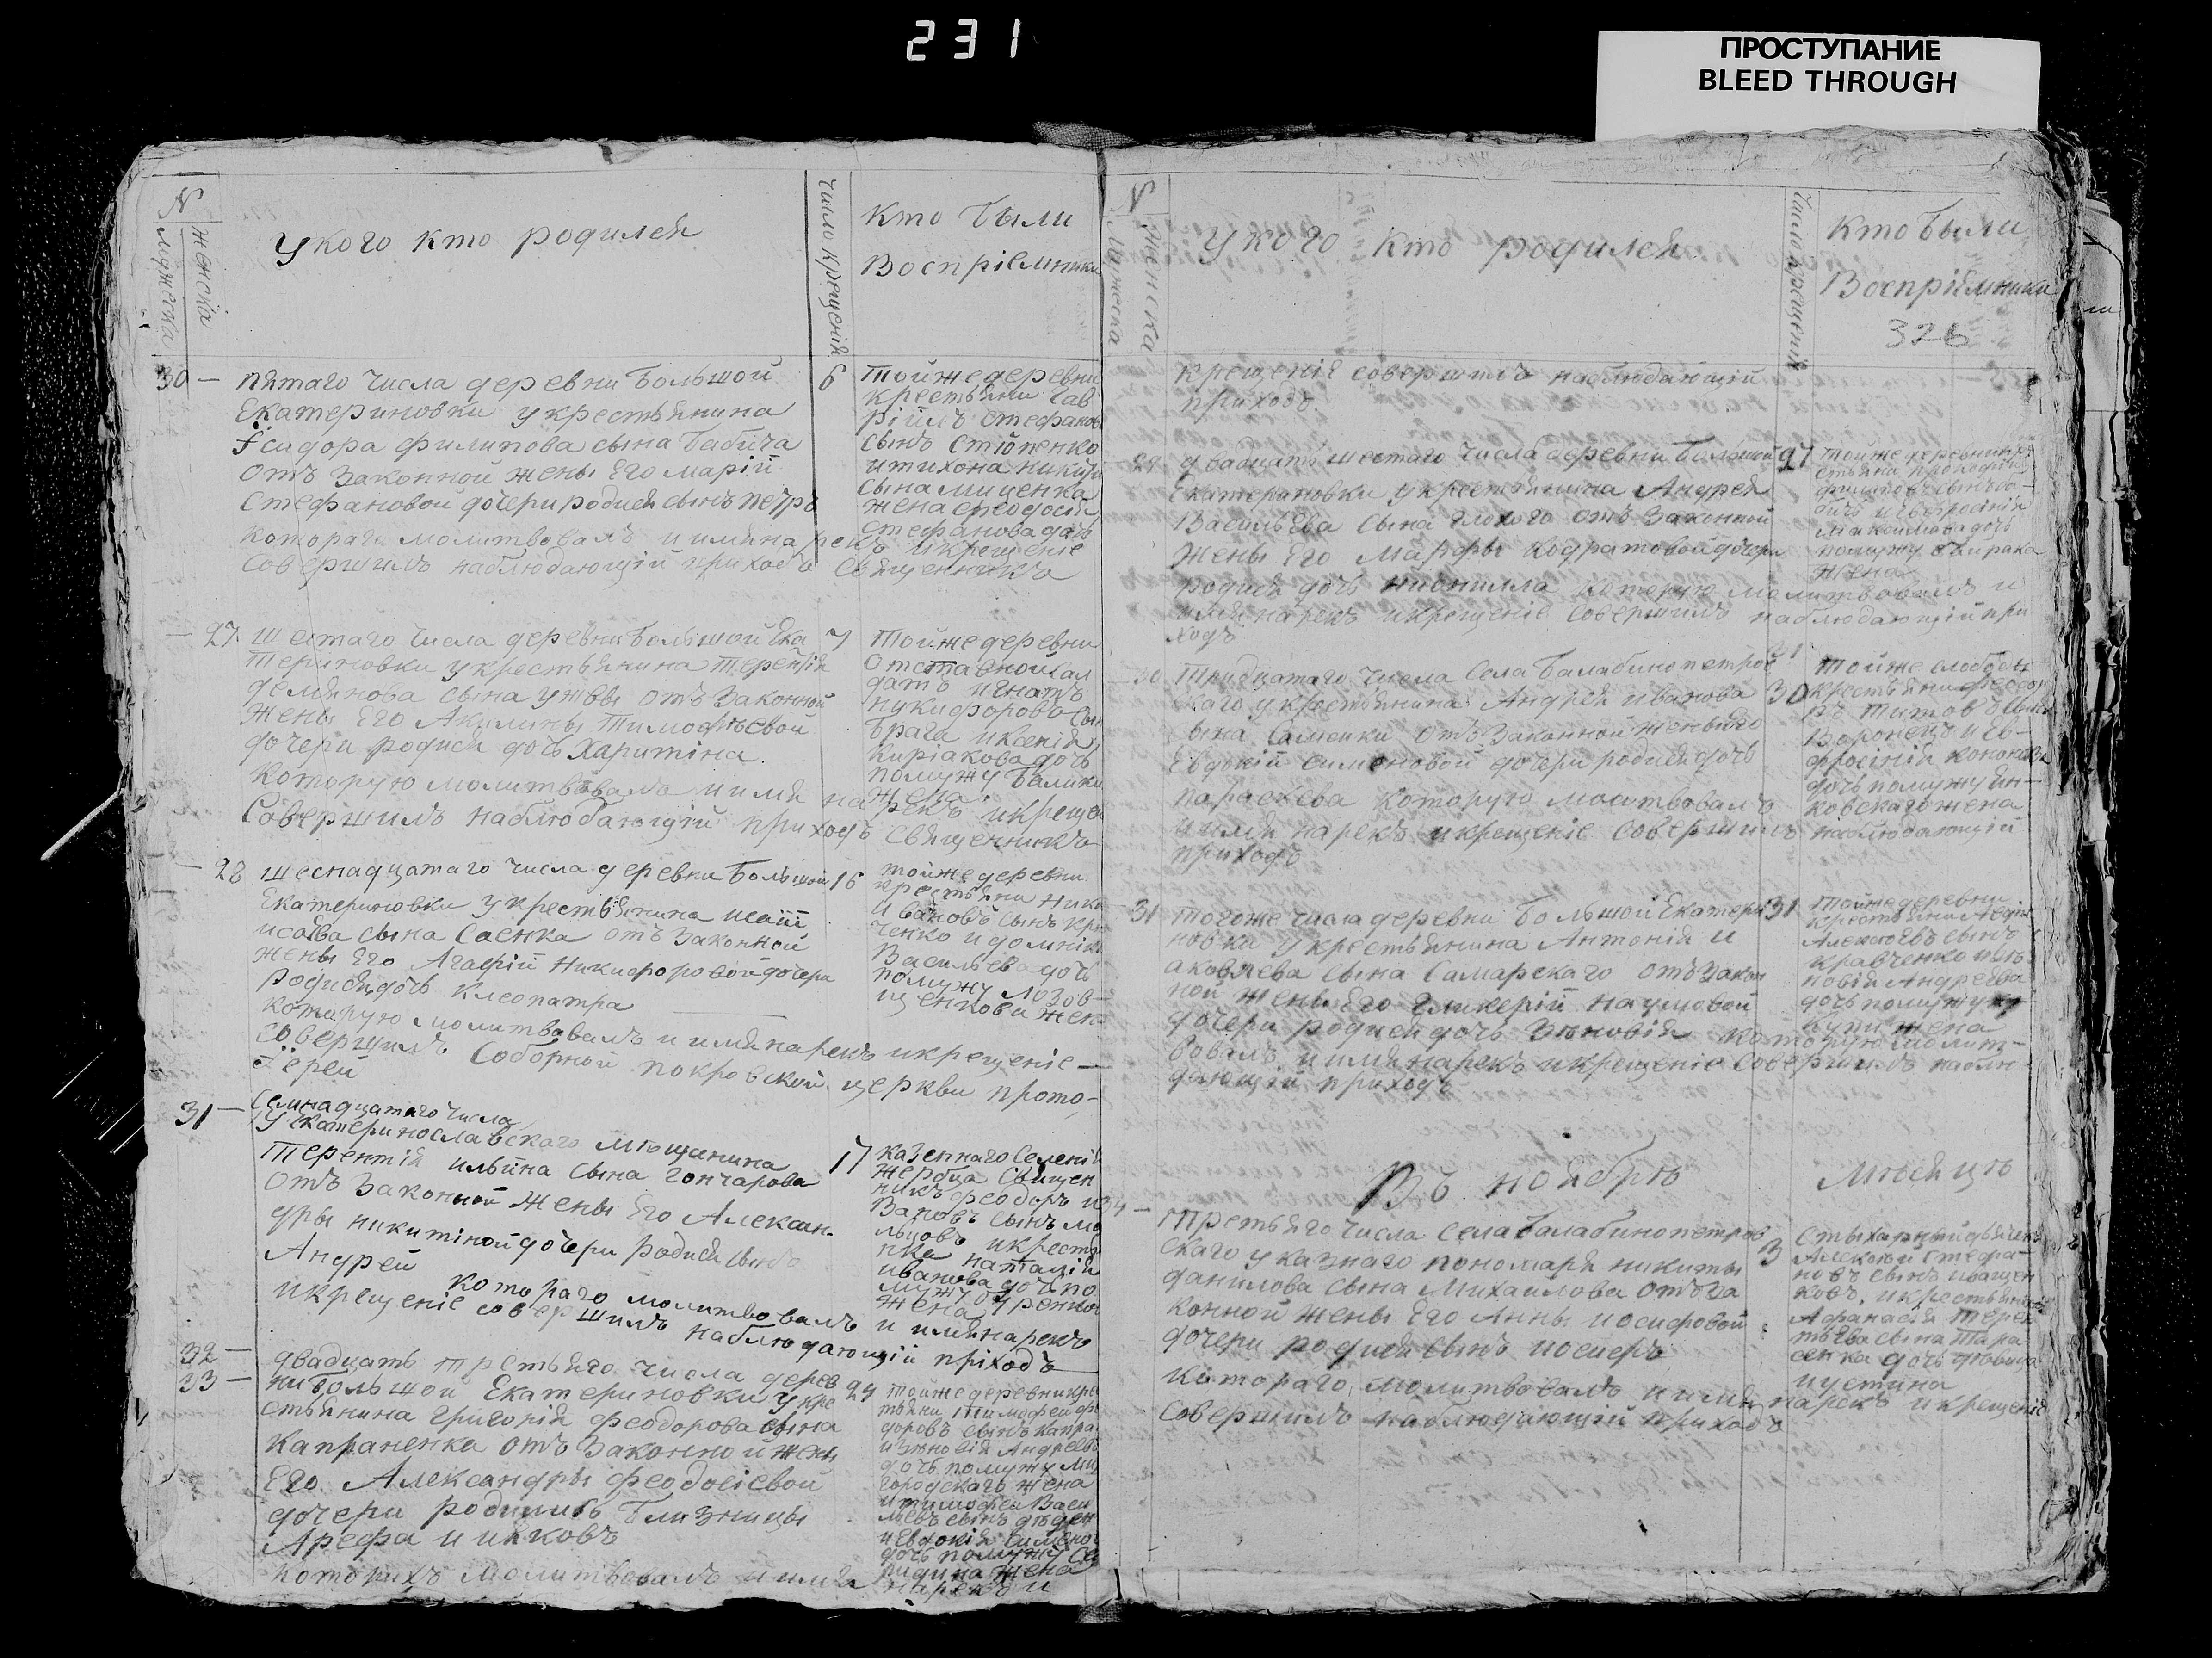 231
ПРОСТУПАНИЕ
BLEED THROUGH
N
мужеска
женска
У кого кто родился
число крещенія
Кто были
Воспріемники
30 — пятаго числа деревни Большой
Екатериновки у крестьянина
Ісидора филипова сына Бабича
отъ законной жены Его маріи
Стефановой дочери родися сынъ петръ
котораго молитвовалъ и имя нарекъ и крещеніе
совершилъ наблюдающій приходъ Священникъ
6
Тойже деревни
крестьяни гав
ріилъ Стефановъ
сынъ Стопенко
и тихона никиф
сына миценка
жена феодосія
Стефанова дочь
— 27. Шестаго числа деревни Большой Ека
териновки у крестьянина терентія
демянова сына ужвы отъ законной
жены Его Акулины тимофѣевой
дочери родися дочь Харитина
которую молитвовалъ и имя нарекъ и креще
совершилъ наблюдающій приходъ священникъ
7
Тойже деревни
отставной сал
датъ игнатъ
никифоровъ сын
Брага и ксенія
Киріакова дочь
помужу Балики
жена
— 28 шеснадцатаго числа деревни Большой
Екатериновки у крестьянина исаіи
исаева сына Саенка отъ законной
жены Его Агафіи Никифоровой дочери
родися дочь Клеопатра
которую молитвовалъ и имя нарекъ и крещеніе —
совершилъ Соборной покровской церкви прото-
Іерей
16
тойже деревни
крестьяни ники
Ивановъ сынъ кра
ченко и домнік
Васильева дочь
помужу лозов-
щенкова жен
31 — Семнадцатаго числа
у Екатеринославскаго мѣщанина
Терентія ильина сына гончарова
отъ законной жены Его Алексан-
дры никитіной дочери родися сынъ
Андрей
котораго молитвовалъ и имя нарекъ
и крещеніе совершилъ наблюдающій приходъ
17
казеннаго Селенія
жеребца Священ
никъ феодоръ и
вановъ сынъ мо
льцовъ и крестья
нка наталія
иванова дочь по
мужу
жена
32 —
33 —
двадцать третьяго числа дерев
ни Большой Екатериновки у кре
стьянина григорія феодорова сына
Капраненка отъ законной жены
Его Александры феодосіевой
дочери родились близницы
Арефа и Іяковъ
которихъ молитвовалъ и имя нарекъ и
24
тойже деревни кре
стьяни тимофей фео
доровъ сынъ капра
и зѣновія Андреева
дочь помужу Мир
городскаго жена
и тимофей Васи
льевъ сынъ
и Евдокія Симено
дочь помужу Се
редина жена
N
мужеска
женска
У кого кто родился
число крещеній
Кто были
Воспріемники
326
крещеніе совершилъ наблюдающій
приходъ
— 29 двадцать шестаго числа деревни Большой
Екатериновки у крестьянина Андрея
Васильева сына глохого отъ законной
жены Его Марфы Кодратовой дочери
родися дочь нионилла которую молитвовалъ и
имя нарекъ и крещеніе совершилъ наблюдающій при
ходъ
27
тойже деревни кре
стьяни
филиповъ сынъ Ба-
бичъ и Евфросінія
Максимова дочь
помужу бирака
жена
— 30 Тридцатаго числа Села Балабинопетров
скаго у крестьянина Андрея иванова
сына Саленки отъ законной жены Его
Евдокіи симеоновой дочери родися дочь
параскева которую молитвовалъ
и имя нарекъ и крещеніе совершилъ наблюдающій
приходъ
30
тойже слободы
крестьяни федо
ръ титовъ сынъ
Воронецъ и Ев-
фросінія кононова
дочь помужу Ян-
ковскаго жена
— 31 тогоже числа деревни Большой Екатери
новки у крестьянина Антонія и
аковлева сына Самарскаго отъ закон
ной жены Его гликеріи наумовой
дочери родися дочь Зѣновія которую молит-
вовалъ и имя нарекъ и крещеніе совершилъ наблю-
дающій приходъ
31
тойже деревни
крестьяни
Алексіевъ сынъ
кравченко и зѣ-
новія Андреева
дочь помужу
жена
Въ ноябрѣ Мѣсяцѣ
34 — третьяго числа села Балабинопетров
скаго указнаго пономаря никиты
данилова сына Михайлова отъ за
конной жены Его Анны иосифовой
дочери родися сынъ иосифъ
котораго молитвовалъ и имя нарекъ и крещеніе
совершилъ наблюдающій приходъ
3
Стыхарный дьячекъ
Алексій Стефа-
новъ сынъ иващен
ковъ и крестьянина
Афанасія терен
тьева сына тара
сенка дочь дѣвица
иустина